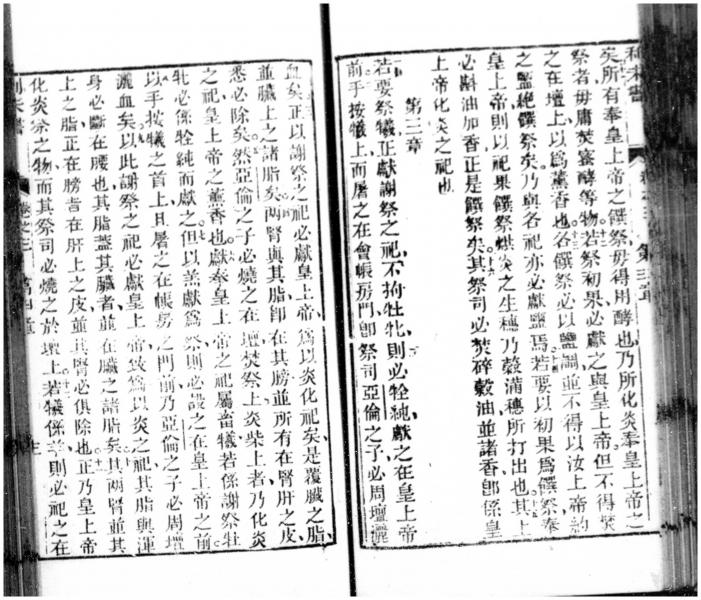 利未書 卷之三 第三章
矣所有奉皇上帝之饌祭毋得用酵也乃所化炎奉皇上帝之
祭者毋庸焚蜜酵等物若祭初果必獻之與皇上帝但不得焚
之在壇上以爲薰香也各饌祭必以鹽調並不得以汝上帝約
之鹽絕饌祭矣乃與各祀亦必獻鹽焉若要以初果爲饌祭奉
皇上帝則以祀果饌祭烘炎之生穗乃穀滿穗所打出也其上
必斟油加香正是饌祭矣其祭司必焚碎穀油並諸香卽係皇
上帝化炎之祀也
第三章
若要祭犧正獻謝祭之祀不拘牡牝則必牷純獻之在皇上帝
前手按犧上而屠之在會帳房門卽祭司亞倫之子必周壇灑
血矣正以謝祭之祀必獻皇上帝爲以炎化祀矣是覆臟之脂
並臟上之諸脂矣兩腎與其脂卽在其膀並所有在腎肝之皮
悉必除矣然亞倫之子必燒之在壇焚祭上炎柴上者乃化炎
之祀皇上帝之薰香也獻奉皇上帝之祀屬畜犧若係謝祭牡
牝必係牷純而獻之但以羔獻爲祭則必設之在皇上帝之前
以手按犧之首上且屠之在帳房之門前乃亞倫之子必周壇
灑血矣以此謝祭之祀必獻皇上帝致爲以炎之祀其脂與渾
身必斷在腰也其脂蓋其臟者並在臟之諸脂矣其兩腎並其
上之脂正在膀者在肝上之皮並其腎必俱除也正乃皇上帝
化炎祭之物而其祭司必燒之於壇上若犧係羊則必祀之在
利未書 卷之三